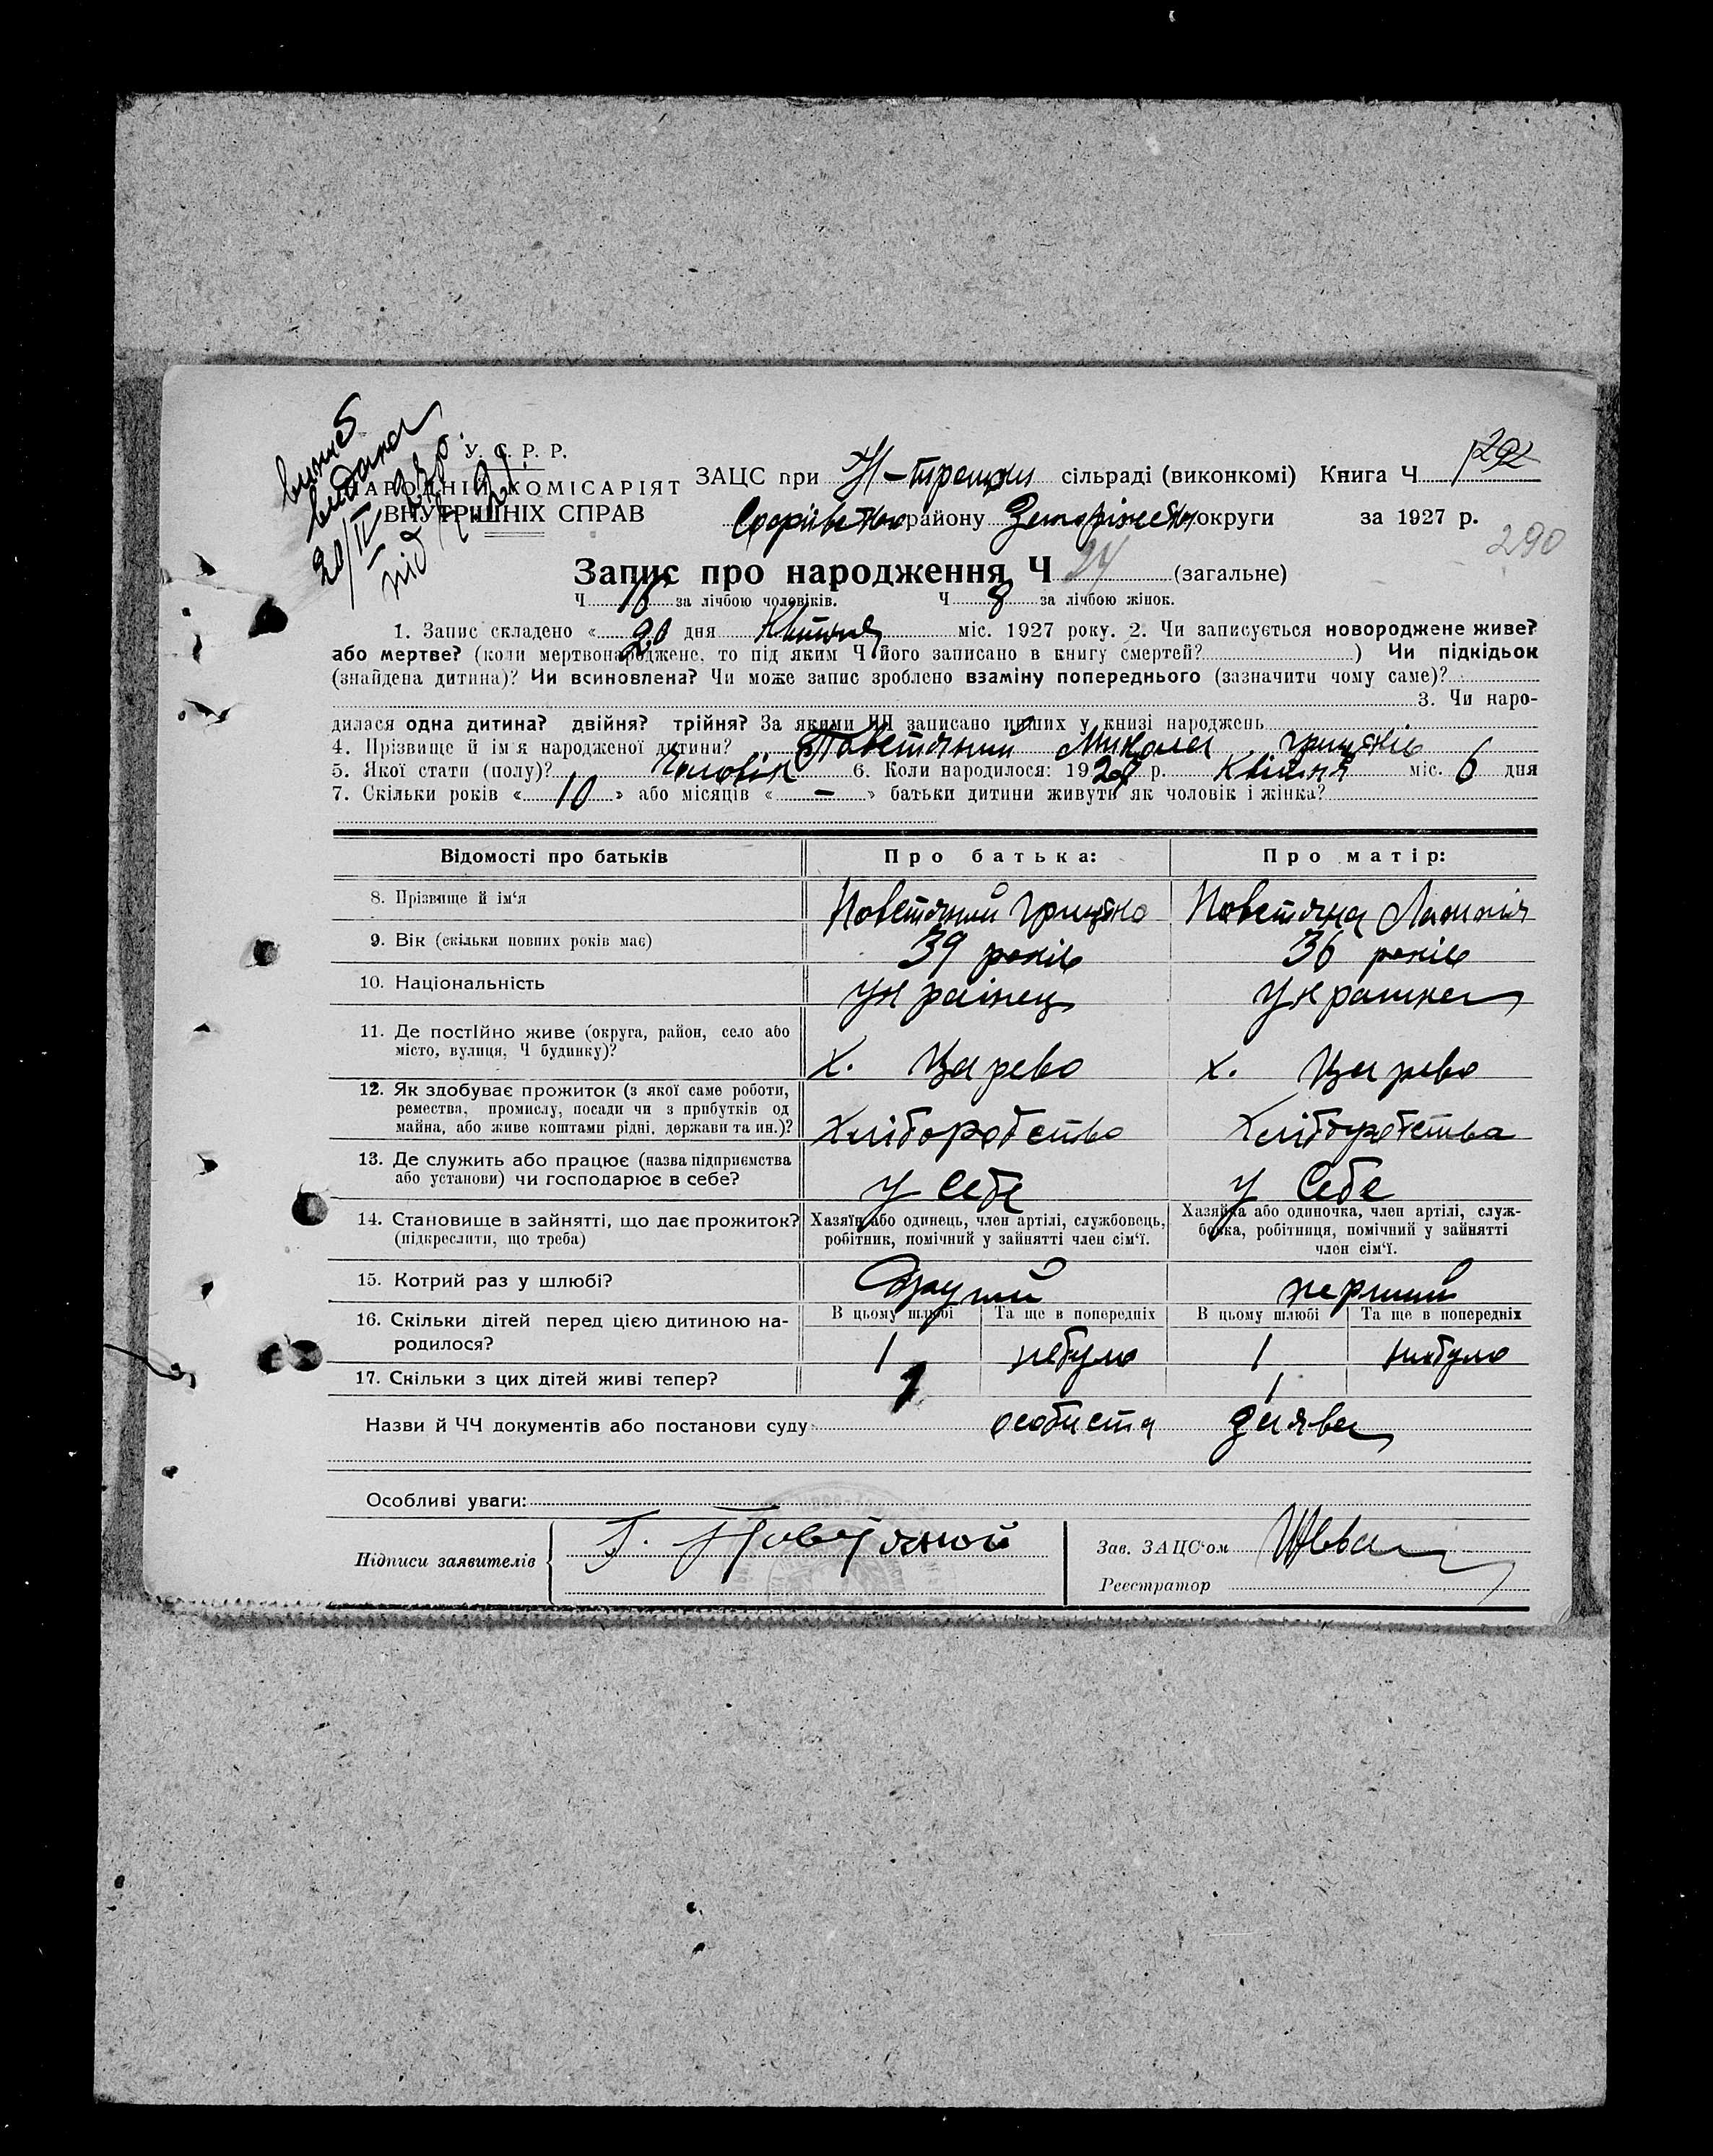 У. С. Р. Р.
НАРОДНІЙ КОМІСАРІЯТ
ВНУТРІШНІХ СПРАВ
випис
видана
20/IV
під
ЗАЦС при сільраді (виконкомі) Книга Ч 1
292
Софіївською району Запоріжської округи за 1927 р.
290
Запис про народження Ч 24 (загальне)
Ч 16 за лічбою чоловіків. Ч 8 за лічбою жінок.
1. Запис складено « 20 дня Квітня міс. 1927 року. 2. Чи записується новороджене живе?
або мертве? (коли мертвонароджене, то під яким Ч його записано в книгу смертей? ) Чи підкідьок
(знайдена дитина)? Чи всиновлена? Чи може запис зроблено взаміну попереднього (зазначити чому саме)?
3. Чи наро-
дилася одна дитина? двійня? трійня? За якими ЧЧ записано инших у книзі народжень
4. Прізвище й ім'я народженої дитини? Повстяний Микола Грицьків
5. Якої стати (полу)? Чоловік 6. Коли народилося: 1927 р. Квітня міс. 6 дня
7. Скільки років « 10 » або місяців « — » батьки дитини живуть як чоловік і жінка?
Відомості про батьків Про батька: Про матір:
8. Прізвище й ім'я Повстяний Грицько Повстяна
9. Вік (скільки повних років має) 39 років 36 років
10. Національність Українец Украинка
11. Де постійно живе (округа, район, село або
місто, вулиця, Ч будинку)? х. Царево х. Царево
12. Як здобуває прожиток (з якої саме роботи,
ремества, промислу, посади чи з прибутків од
майна, або живе коштами рідні, держави та ин.)? Хліборобство Хліборобства
13. Де служить або працює (назва підприємства
або установи) чи господарює в себе? у себе у себе
14. Становище в зайнятті, що дає прожиток?
(підкреслити, що треба)
Хазяїн або одинець, член артілі, службовець,
робітник, помічний у зайнятті член сім'ї.
Хазяйка або одиночка, член артілі, служ-
бовка, робітниця, помічний у зайнятті
член сім'ї.
15. Котрий раз у шлюбі? Другий перший
16. Скільки дітей перед цією дитиною на-
родилося?
В цьому шлюбі Та ще в попередніх В цьому шлюбі Та ще в попередніх
1 небуло 1 небуло
17. Скільки з цих дітей живі тепер? 1 1
Назви й ЧЧ документів або постанови суду особиста заява
Особливі уваги:
Підписи заявителів Г. Повстяной
Зав. ЗАЦС'ом
Реєстратор